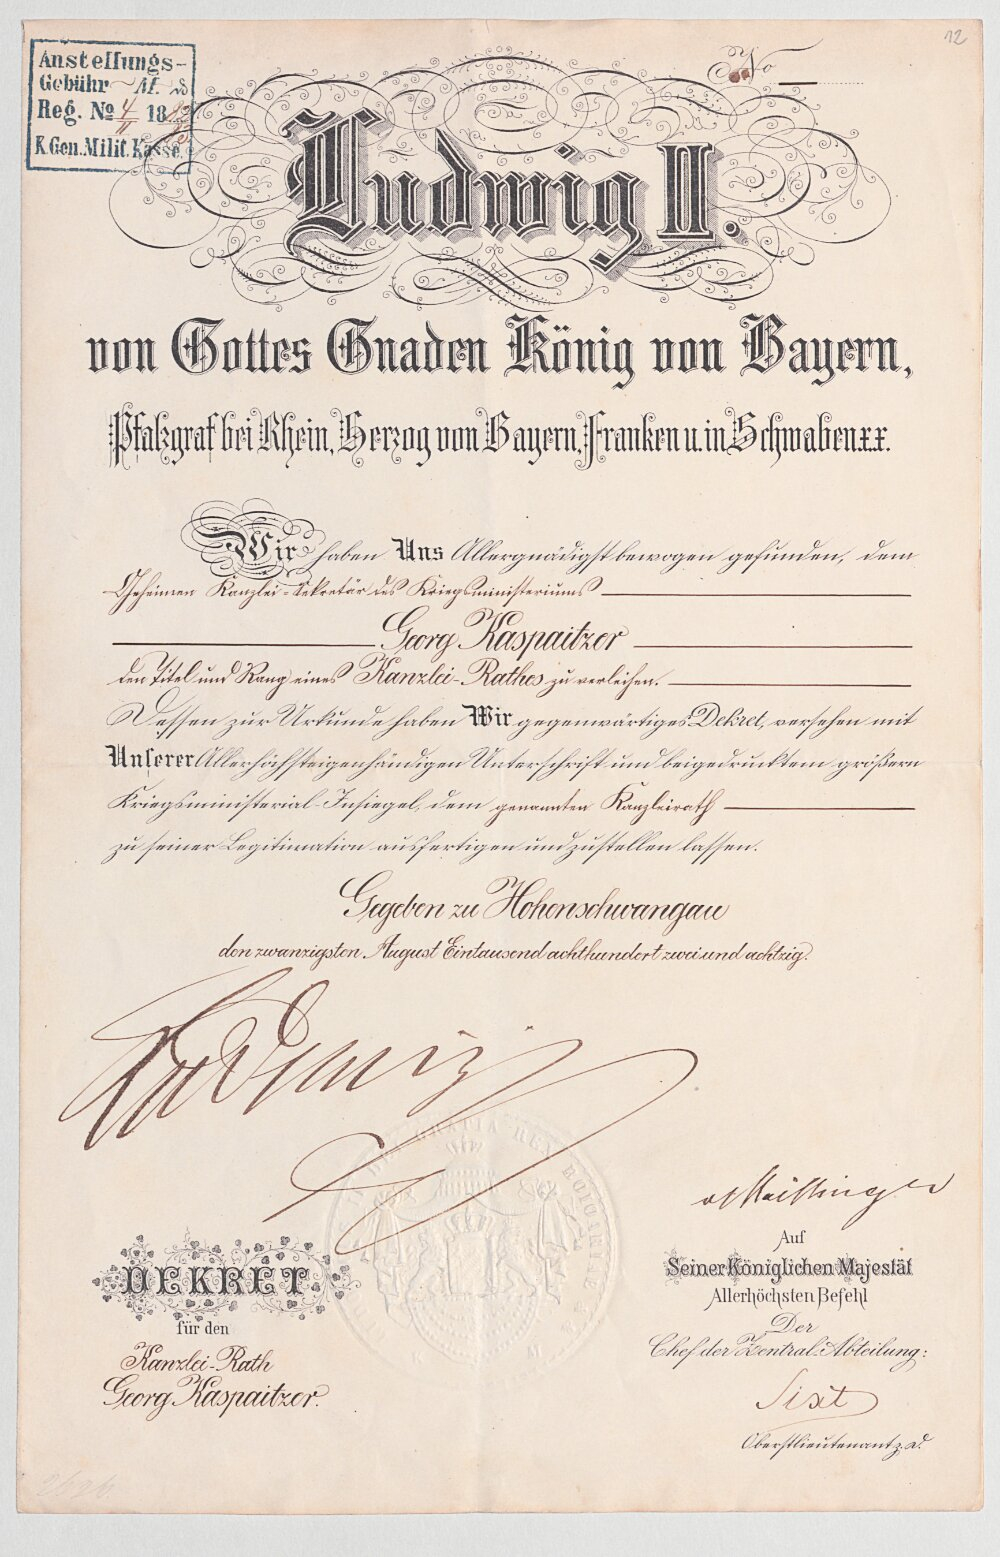 12
Anstellungs-
Gebühr M. ₰
Reg. № 4/II 1883
K. Gen. Milit. Kasse.
No
Ludwig II.
von Gottes Gnaden König von Bayern,
Pfalzgraf bei Rhein, Herzog von Bayern, Franken u. in Schwaben x.x.
Wir haben Uns Allergnädigst bewogen gefunden, dem
Geheimen Kanzlei-Sekretär des Kriegsministeriums
Georg Kaspaitzer
den Titel und Rang eines Kanzlei-Rathes zu verleihen.
Dessen zur Urkunde haben Wir gegenwärtiges Dekret, versehen mit
Unserer Allerhöchsteigenhändigen Unterschrift und beigedrucktem größern
Kriegsministerial-Insiegel, dem genannten Kanzleirath
zu seiner Legitimation ausfertigen und zustellen lassen.
Gegeben zu Hohenschwangau
den zwanzigsten August Eintausend achthundert zwei und achtzig.
Ludwig
GRATIA REX
v. Maillinger
Auf
Seiner Königlichen Majestät
Allerhöchsten Befehl
Der
Chef der Zentral-Abteilung:
Sixt
Oberstlieutenant z. D.
DEKRET
für den
Kanzlei-Rath
Georg Kaspaitzer.